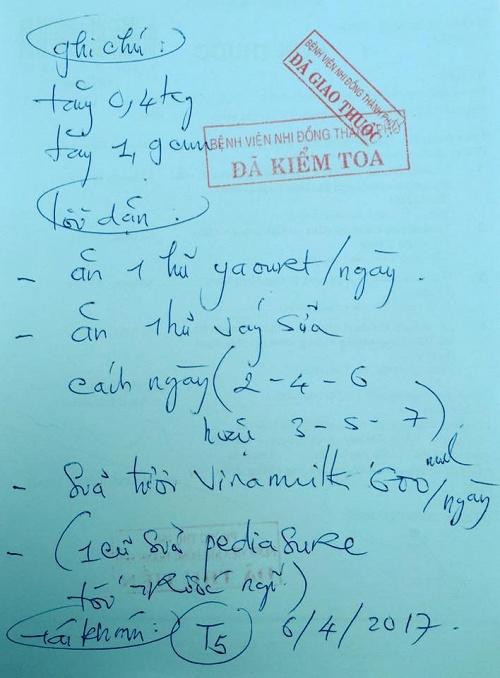 ghi chú:
BỆNH VIỆN NHI ĐỒNG THÀNH PHỐ
ĐÃ GIAO THUỐC
tăng 0,4kg
tăng 1,9cm
BỆNH VIỆN NHI ĐỒNG THÀNH PHỐ
ĐÃ KIỂM TOA
lời dặn:
- ăn 1 hũ yaourt/ngày.
- ăn 1 hũ váng sữa
cách ngày (2-4-6
hoặc 3-5-7)
- Sữa tươi Vinamilk 600ml/ngày
- (1 cữ sữa pediasure
tối trước ngủ)
tái khám: T5 6/4/2017.